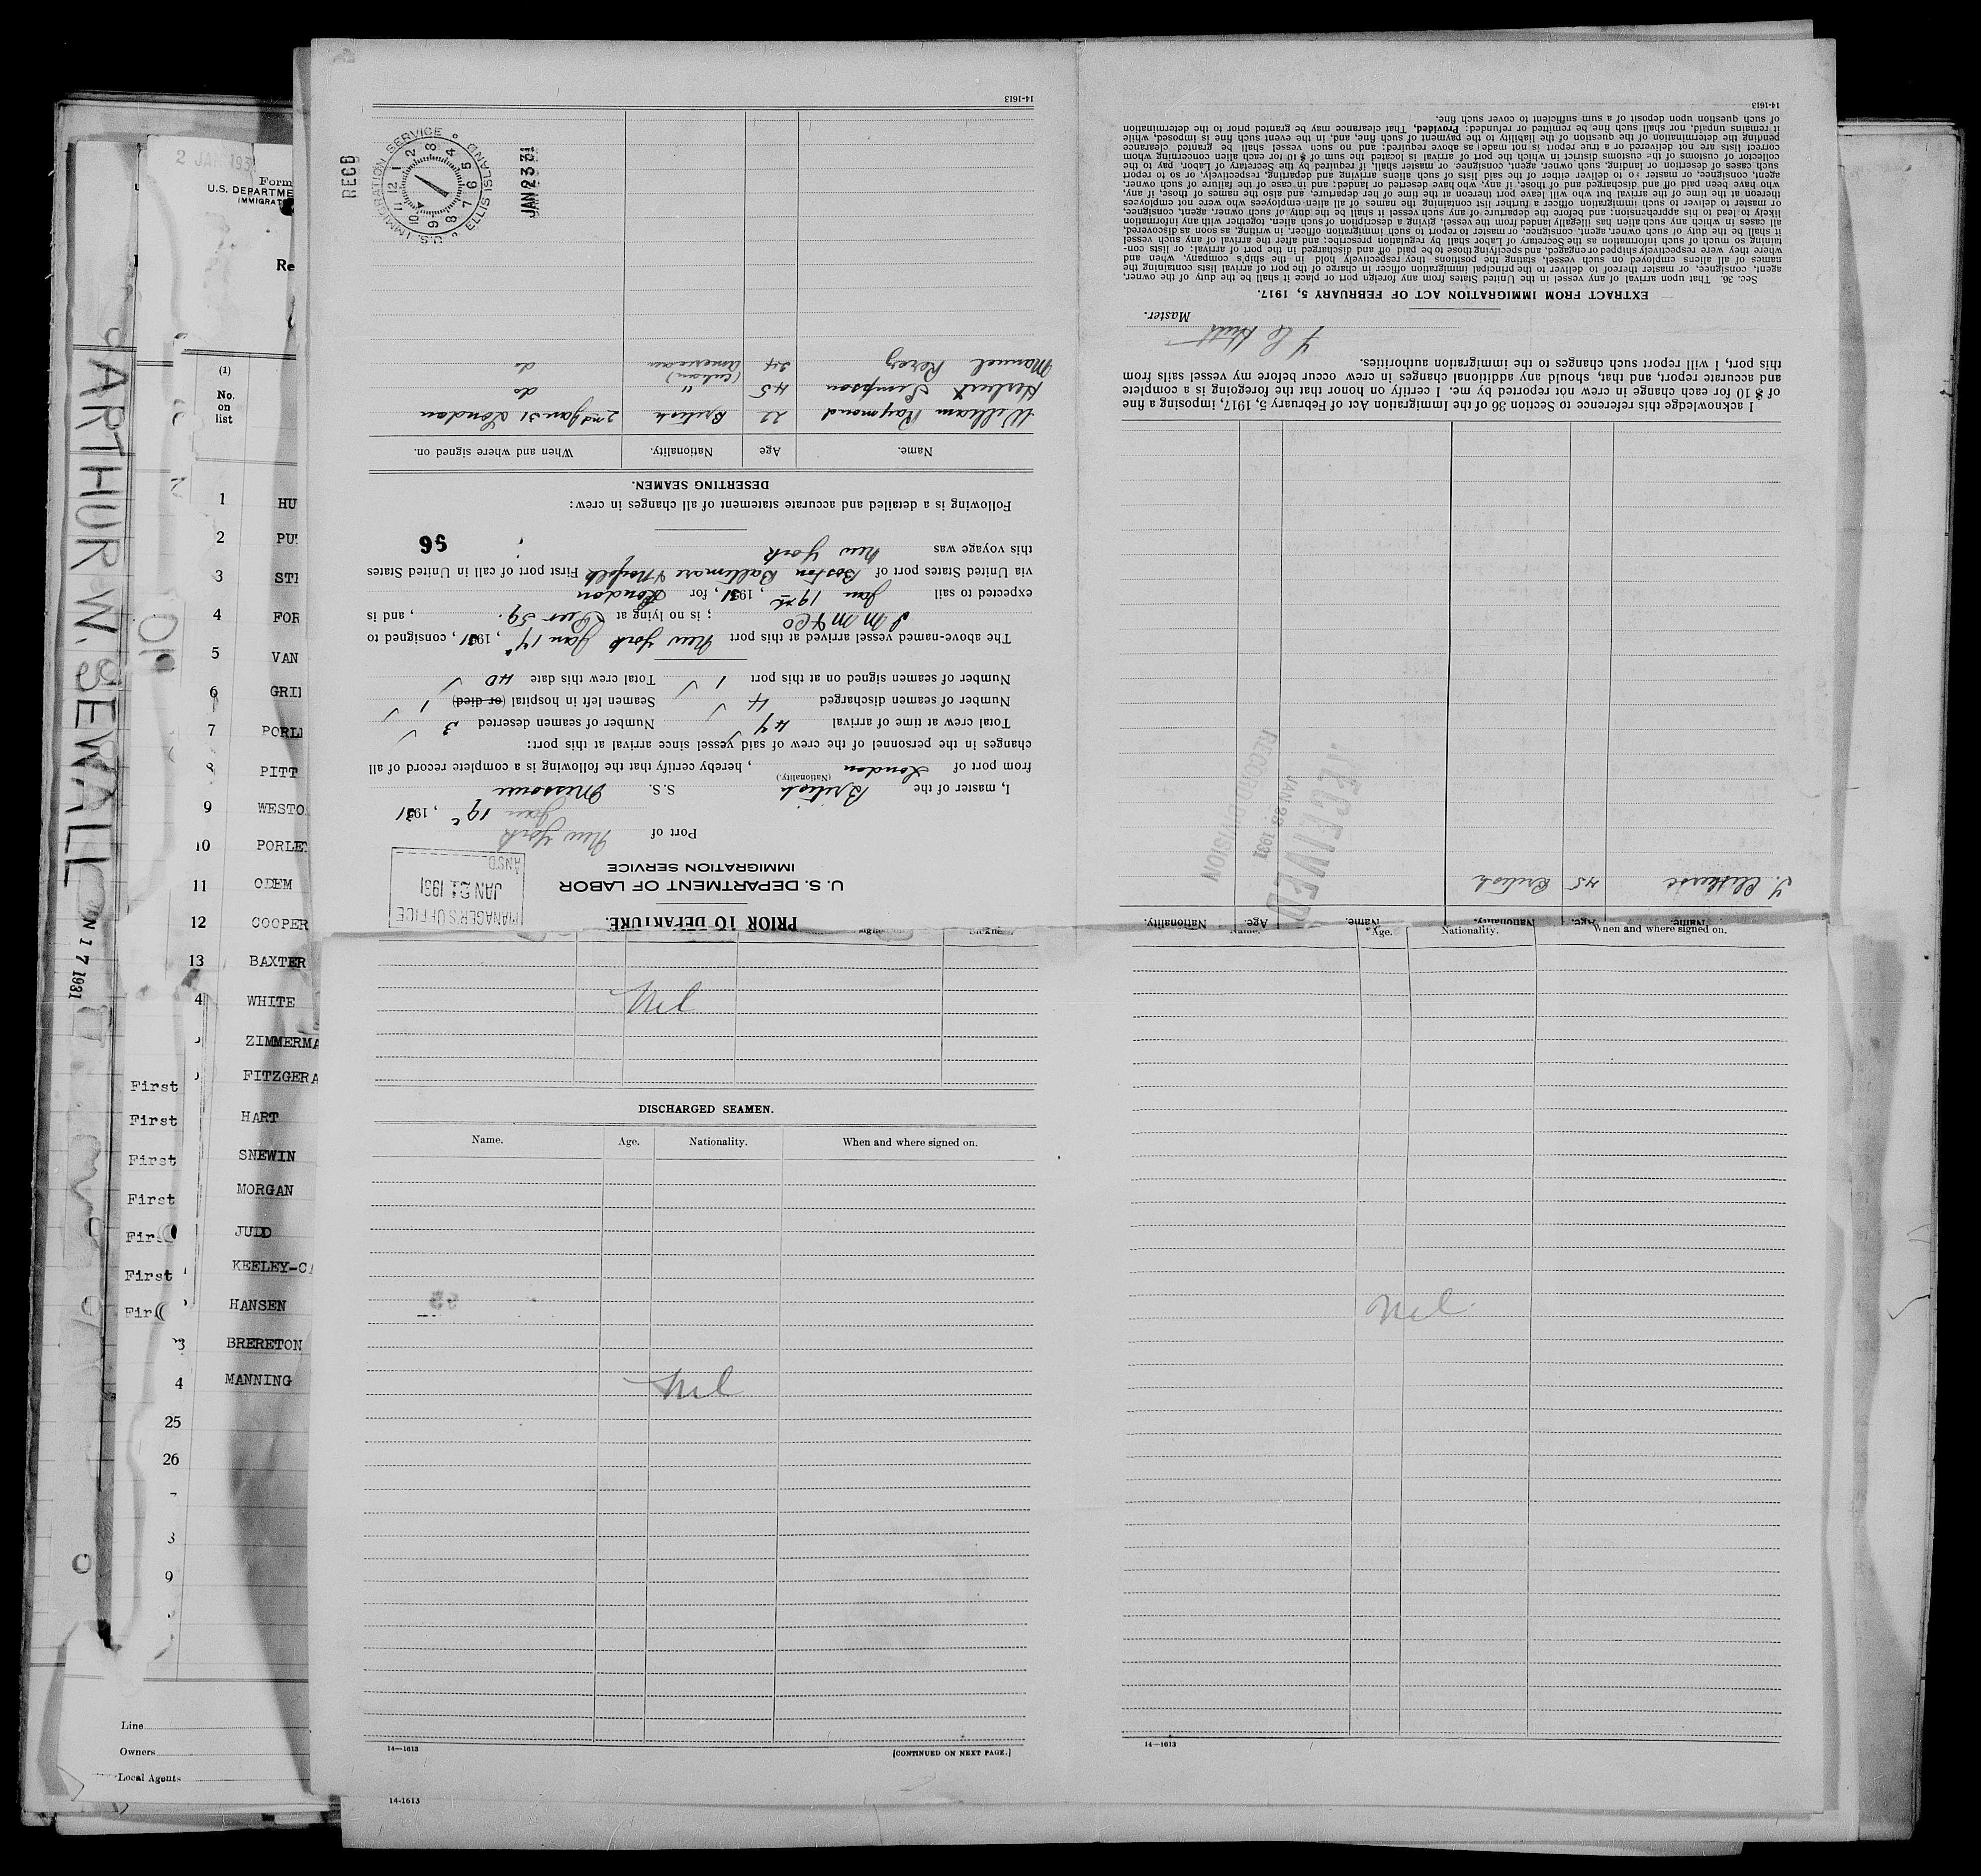 2 JAN 193
Form
U.S. DEPARTME
IMMIGRAT
Re
ARTHUR W. SEWALL
N 17 1931
(1)
No.
on
list
1 HU
2 PU
3 STE
4 FOR
5 VAN
6 GRI
7 PORL
8 PITT
9 WESTO
10 PORLE
11 ODEM
12 COOPER
13 BAXTER
4 WHITE
ZIMMERMA
First FITZGERA
First HART
First SNEWIN
First MORGAN
Fir JUDD
First KEELEY-C
Fir HANSEN
3 BRERETON
4 MANNING
25
26
9
Line
Owners
Local Agents
PRIOR TO DEPARTURE.
MANAGER'S OFFICE
JAN 21 1931
ANSD.
U. S. DEPARTMENT OF LABOR
IMMIGRATION SERVICE
Port of New York
Jan 19, 1931
I, master of the British S.S. Missouri
(Nationality.)
from port of London, hereby certify that the following is a complete record of all
changes in the personnel of the crew of said vessel since arrival at this port:
Total crew at time of arrival 47 Number of seamen deserted 3
Number of seamen discharged 4 Seamen left in hospital (or died) 1
Number of seamen signed on at this port 1 Total crew this date 40
The above-named vessel arrived at this port New York Jan 17, 1931, consigned to
I M M & Co ; is no lying at Pier 59. , and is
expected to sail Jan 19th, 1931, for London
via United States port of Boston Baltimore & Norfolk First port of call in United States
this voyage was New York
96
Following is a detailed and accurate statement of all changes in crew:
DESERTING SEAMEN.
Name. Age Nationality. When and where signed on.
William Raymond 22 British 2nd Jan 31 London
Herbert Simpson 45 " do
Manuel Perez 34 (Cuban) American do
RECD
U.S. IMMIGRATION SERVICE ELLIS ISLAND
1 2 3 4 5 6 7 8 9 10 11 12
JAN 23 31
14-1613
Name. Age. Nationality. Name. Age. Nationality.
45 British
RECEIVED
JAN 23 1931
RECORD DIVISION
I acknowledge this reference to Section 36 of the Immigration Act of February 5, 1917, imposing a fine
of $10 for each change in crew not reported by me. I certify on honor that the foregoing is a complete
and accurate report, and that, should any additional changes in crew occur before my vessel sails from
this port, I will report such changes to the immigration authorities.
Master.
EXTRACT FROM IMMIGRATION ACT OF FEBRUARY 5, 1917.
Sec. 36. That upon arrival of any vessel in the United States from any foreign port or place it shall be the duty of the owner,
agent, consignee, or master thereof to deliver to the principal immigration officer in charge of the port of arrival lists containing the
names of all aliens employed on such vessel, stating the positions they respectively hold in the ship's company, when and
where they were respectively shipped or engaged, and specifying those to be paid off and discharged in the port of arrival; or lists con-
taining so much of such information as the Secretary of Labor shall by regulation prescribe; and after the arrival of any such vessel
it shall be the duty of such owner, agent, consignee, or master to report to such immigration officer, in writing, as soon as discovered,
all cases in which any such alien has illegally landed from the vessel, giving a description of such alien, together with any information
likely to lead to his apprehension; and before the departure of any such vessel it shall be the duty of such owner, agent, consignee,
or master to deliver to such immigration officer a further list containing the names of all alien employees who were not employed
thereon at the time of the arrival but who will leave port thereon at the time of her departure, and also the names of those, if any,
who have been paid off and discharged and of those, if any, who have deserted or landed; and in case of the failure of such owner,
agent, consignee, or master to deliver either of the said lists of such aliens arriving and departing, respectively, or so to report
such cases of desertion or landing, such owner, agent, consignee, or master shall, if required by the Secretary of Labor, pay to the
collector of customs of the customs district in which the port of arrival is located the sum of $10 for each alien concerning whom
correct lists are not delivered or a true report is not made as above required; and no such vessel shall be granted clearance
pending the determination of the question of the liability to the payment of such fine, and, in the event such fine is imposed, while
it remains unpaid, nor shall such fine be remitted or refunded: Provided, That clearance may be granted prior to the determination
of such question upon deposit of a sum sufficient to cover such fine.
14-1613
Nil
DISCHARGED SEAMEN.
Name. Age. Nationality. When and where signed on.
Nil
14—1613
[CONTINUED ON NEXT PAGE.]
14-1613
Name. Age. Nationality. When and where signed on.
Nil.
14—1613